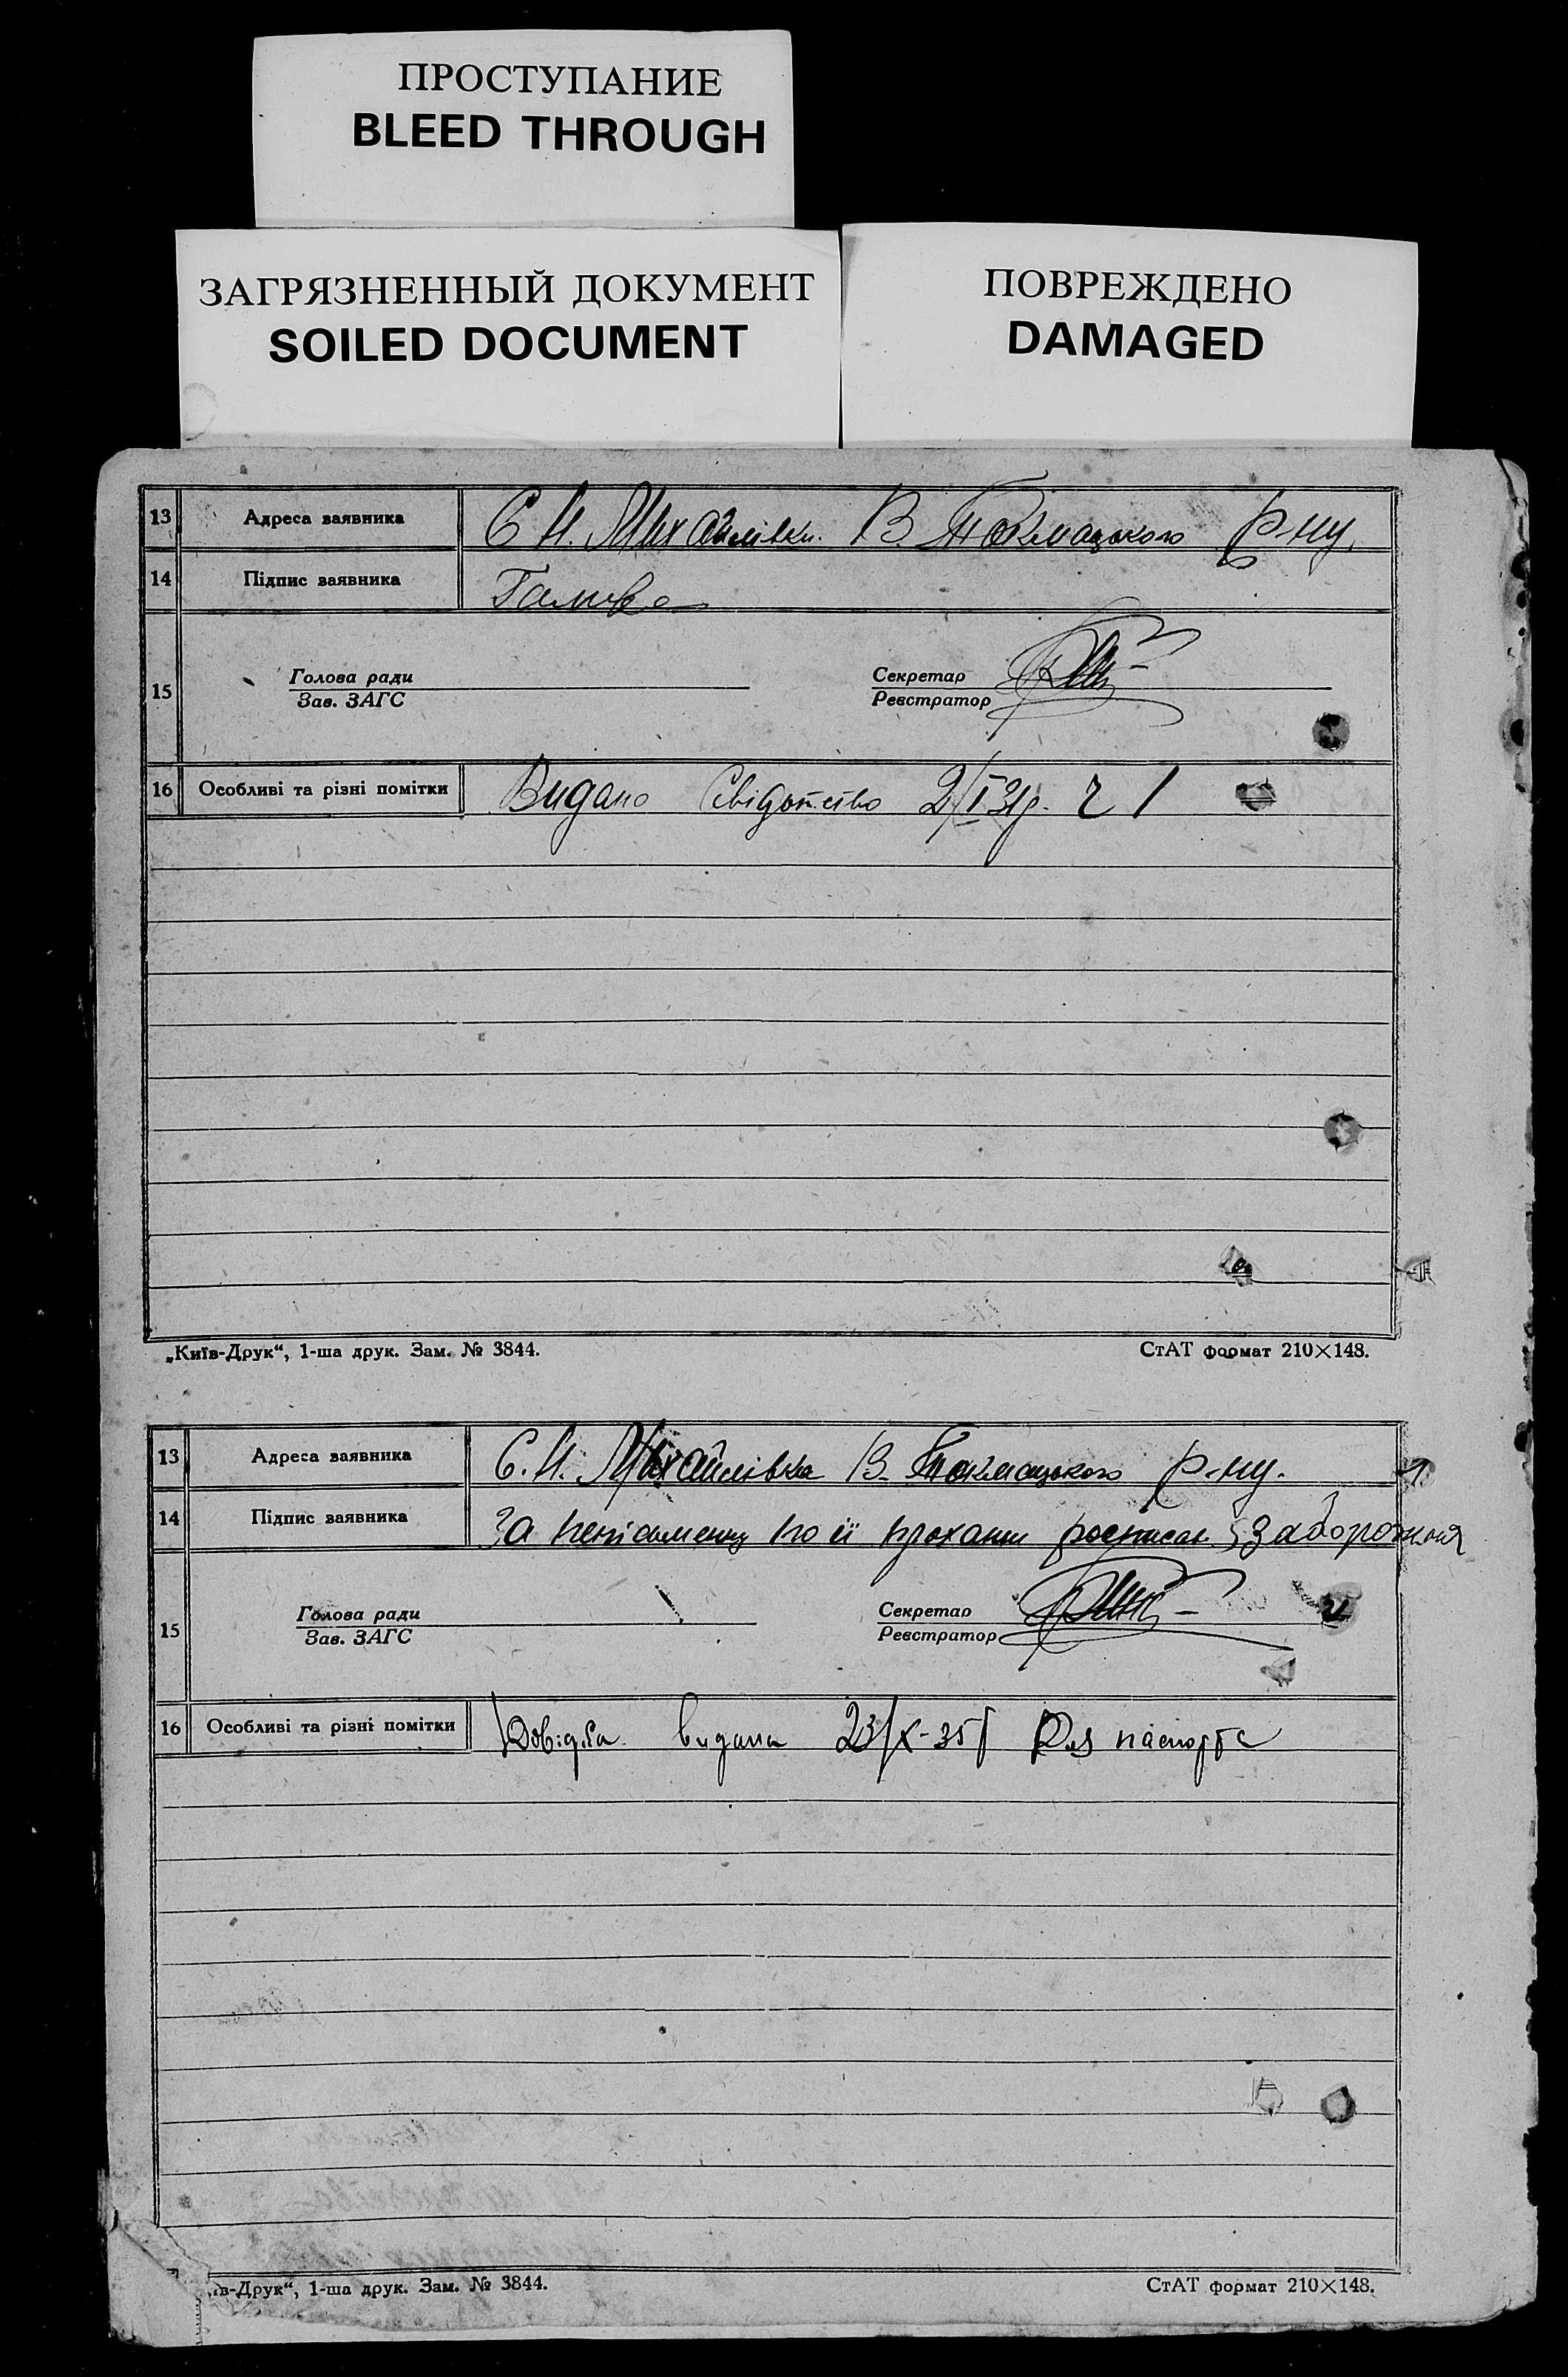 ПРОСТУПАНИЕ
BLEED THROUGH
ЗАГРЯЗНЕННЫЙ ДОКУМЕНТ
SOILED DOCUMENT
ПОВРЕЖДЕНО
DAMAGED
13 Адреса заявника С Н. Михайлівки. В. Токмацького р-ну,
14 Підпис заявника
15 Голова ради Секретар
Зав. ЗАГС Реєстратор
16 Особливі та різні помітки Видано Свідотство 2/I 31р. ч 1
„Київ-Друк“, 1-ша друк. Зам. № 3844. СтАТ формат 210×148.
13 Адреса заявника С. Н. Михайлівка В. Токмацького р-ну.
14 Підпис заявника За неписьмену по її прохани росписал Заборожня
15 Голова ради Секретар
Зав. ЗАГС Реєстратор
16 Особливі та різні помітки Довідка видана 23/X-35 Для паспорта
їв-Друк“, 1-ша друк. Зам. № 3844. СтАТ формат 210×148.